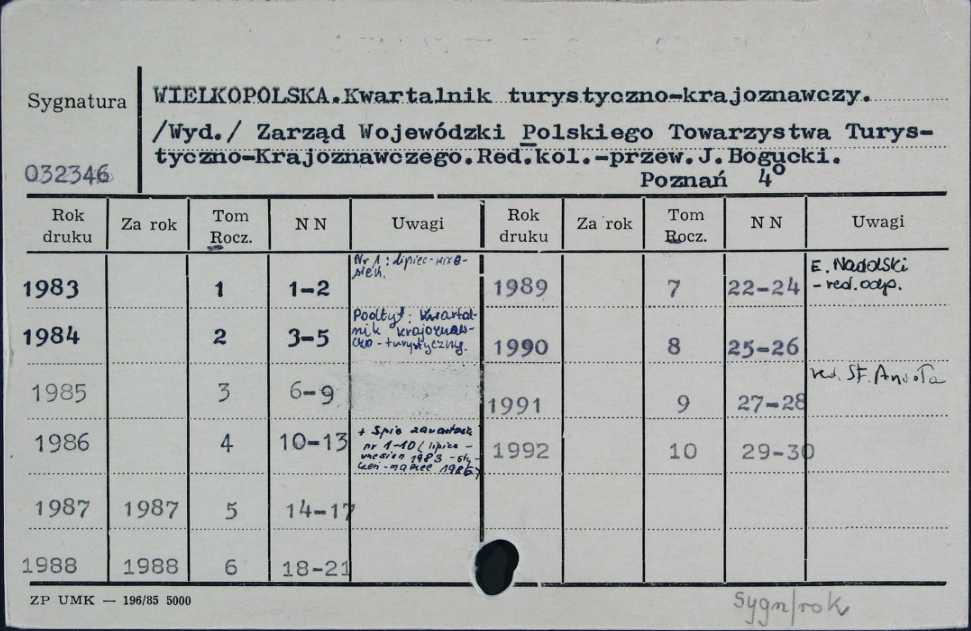 Sygnatura
WIELKOPOLSKA.Kwartalnik turystyczno-krajoznawczy.
/Wyd./ Zarząd Wojewódzki Polskiego Towarzystwa Turys-
tyczno-Krajoznawczego.Red.kol.-przew.J.Bogucki.
032346
Poznań 4º
Rok druku Za rok Tom Rocz. N N Uwagi Rok druku Za rok Tom Rocz. N N Uwagi
1983 1 1-2 Nr 1: lipiec-wrze-
sień.
1989 7 22-24 E. Nadolski
- red. odp.
1984 2 3-5 Podtyt: Kwartal-
nik krajoznaw-
czo-turystyczny.
1990 8 25-26
1985 3 6-9
1991 9 27-28 red. St.
1986 4 10-13 + Spis zawartości
nr 1-10 (lipiec-
wrzesień 1983 - sty-
czeń-marzec 1986)
1992 10 29-30
1987 1987 5 14-17
1988 1988 6 18-21
ZP UMK — 196/85 5000
Sygn/rok